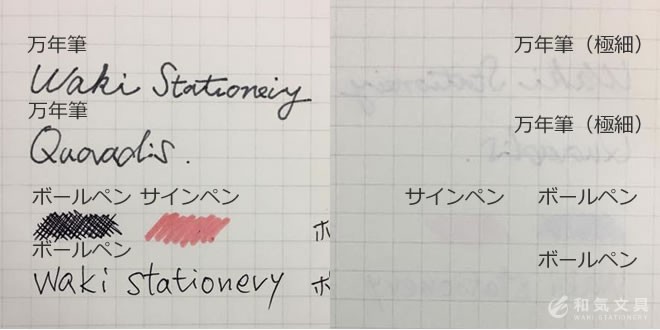 万年筆
Waki Stationery
万年筆
Quovadis.
ボールペン サインペン
ボ
ボールペン
waki stationery
ボ
万年筆（極細）
万年筆（極細）
サインペン ボールペン
ボールペン
和気文具
WAKI-STATIONERY